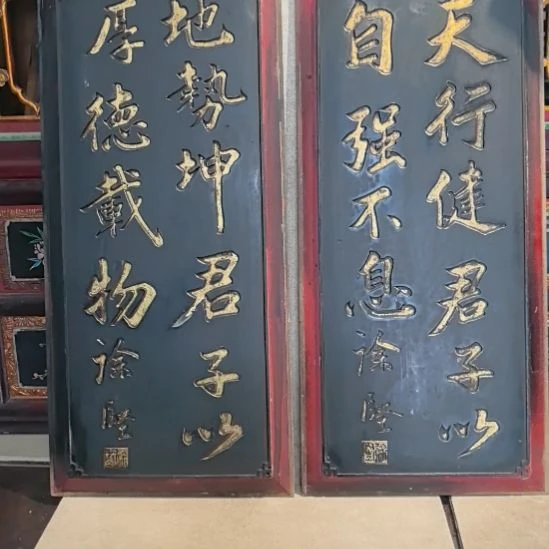 天行健君子以
自强不息
地勢坤君子以
厚德載物